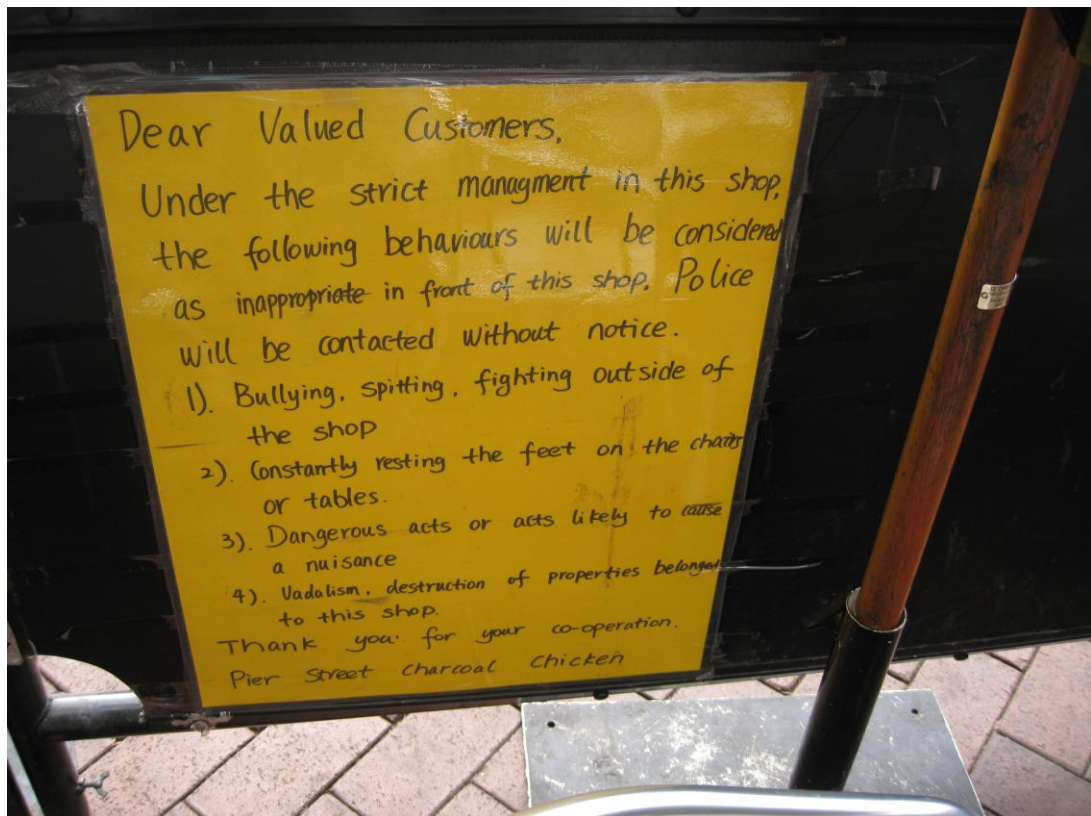 Dear Valued Customers,
Under the strict managment in this shop,
the following behaviours will be considered
as inappropriate in front of this shop. Police
will be contacted without notice.
1). Bullying, spitting, fighting outside of
the shop
2). Constantly resting the feet on the chairs
or tables.
3). Dangerous acts or acts likely to cause
a nuisance
4). Vadalism, destruction of properties belonged
to this shop.
Thank you for your co-operation.
Pier Street Charcoal Chicken